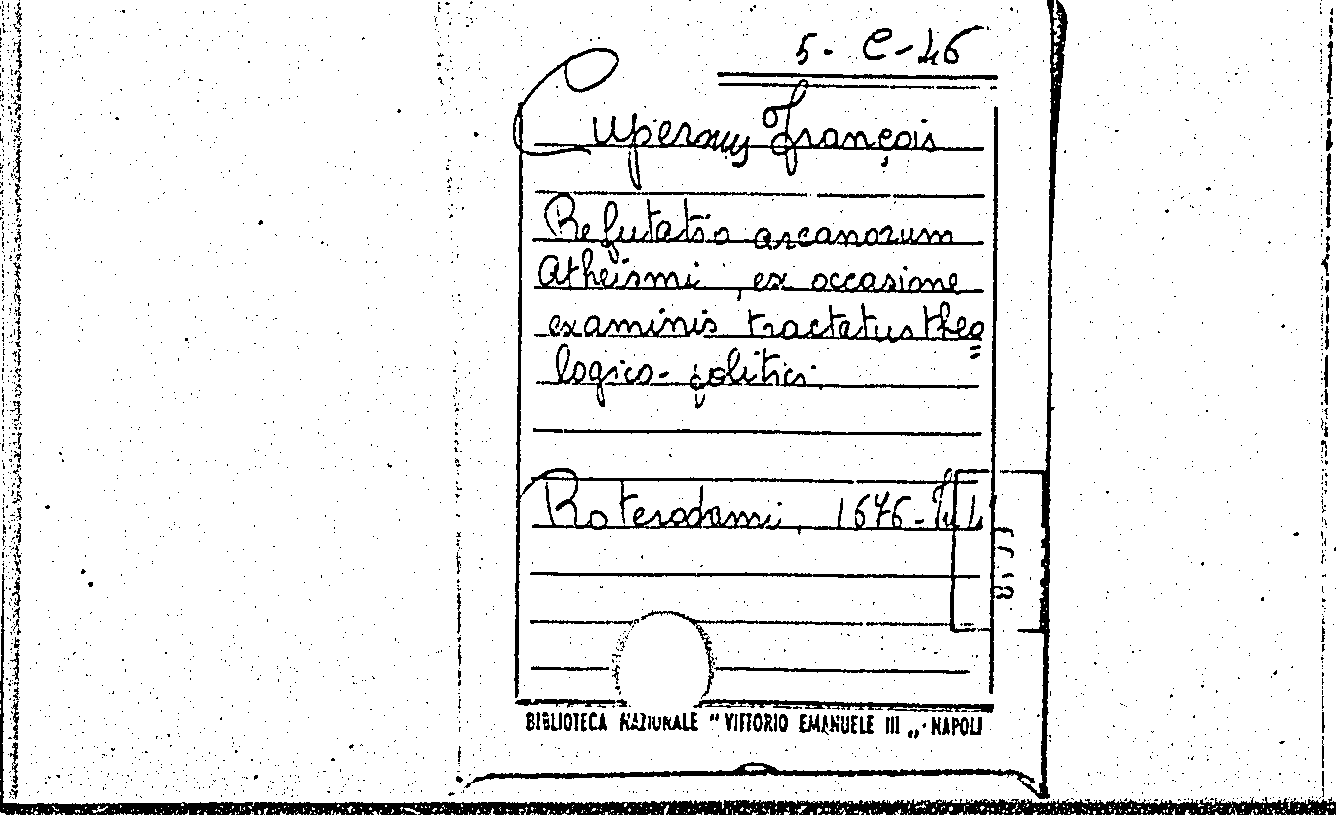 5- C-46
Cuperus François
Refutatio arcanorum
Atheismi, ex occasione
examinis tractatus theo
=
logico-politici.
Roterodami, 1676-
BIBLIOTECA NAZIONALE "VITTORIO EMANUELE III„ - NAPOLI